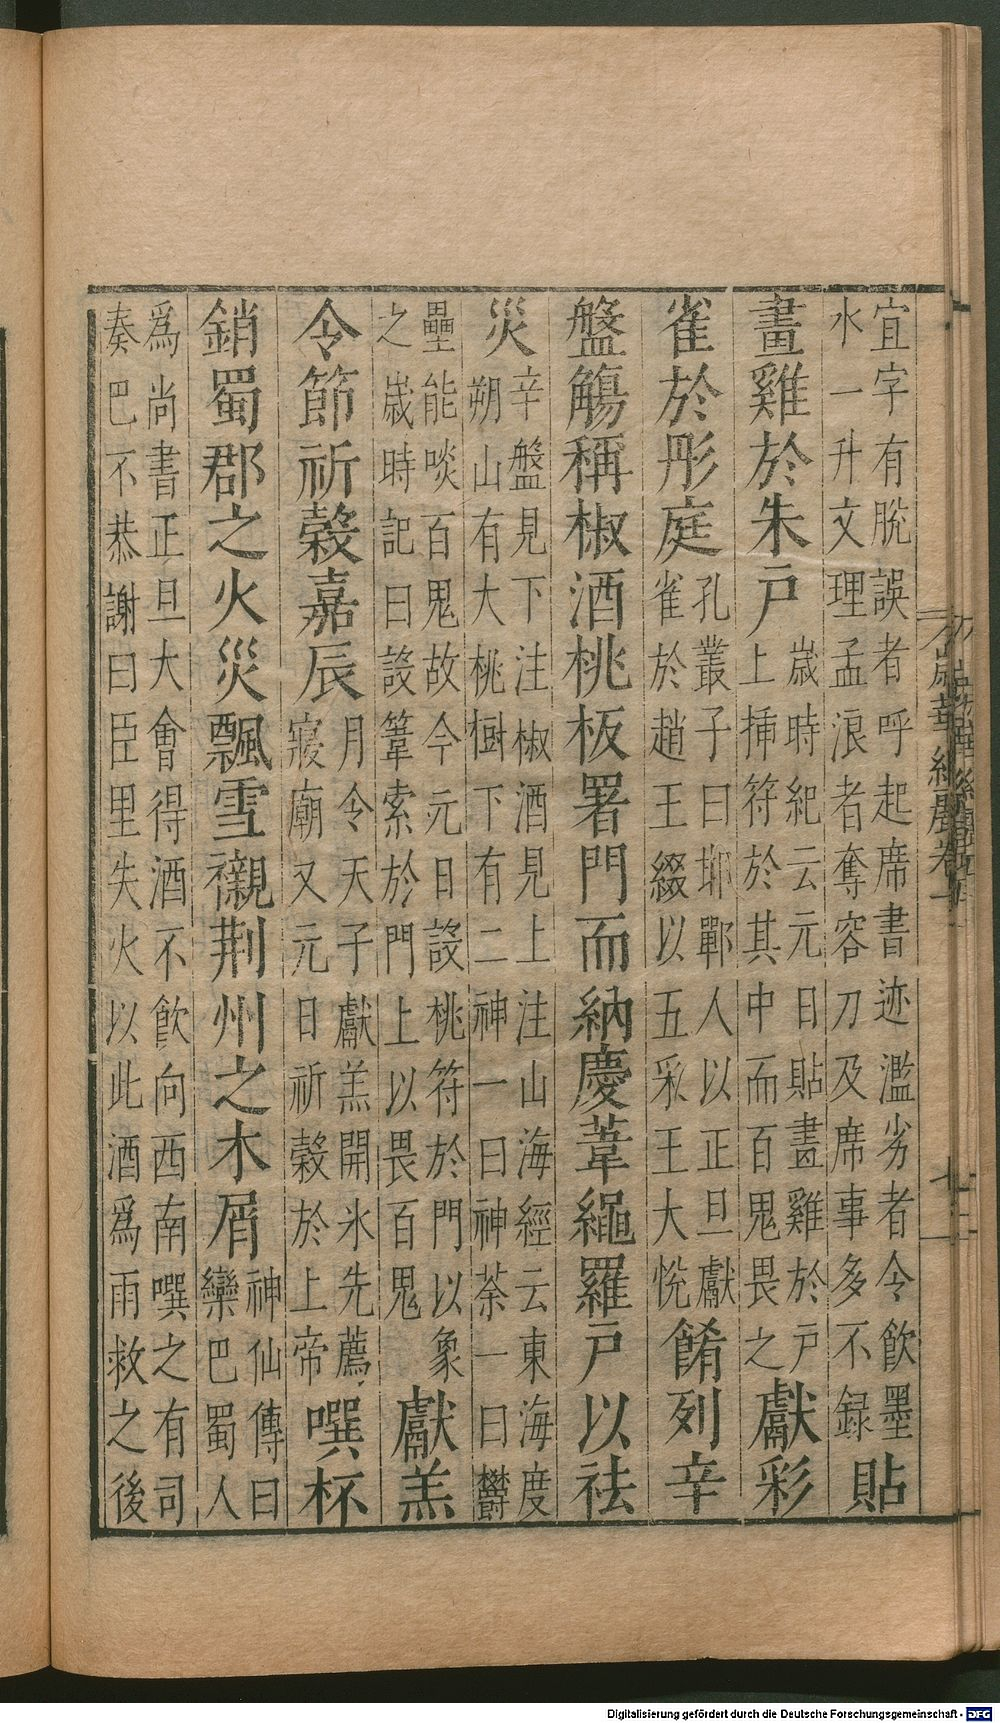 宜字有脫誤者呼起席書迹濫劣者令飲墨
水一升文理孟浪者奪容刀及席事多不録
貼
畫雞於朱戸
歳時紀云元日貼畫雞於戸
上挿符於其中而百鬼畏之
獻彩
雀於彤庭
孔叢子曰邯鄲人以正旦獻
雀於趙王綴以五采王大悅
餚列辛
盤觴稱椒酒桃板署門而納慶葦繩羅戸以祛
災
辛盤見下注椒酒見上注山海經云東海度
朔山有大桃樹下有二神一曰神荼一曰欎
壘能啖百鬼故今元日設桃符於門以象
之歳時記曰設葦索於門上以畏百鬼
獻羔
令節祈榖嘉辰
月令天子獻羔開氷先薦
寢廟又元日祈榖於上帝
噀杯
銷蜀郡之火災飄雪襯荆州之木屑
神仙傳曰
欒巴蜀人
爲尚書正旦大會得酒不飲向西南噀之有司
奏巴不恭謝曰臣里失火以此酒爲雨救之後
歳華紀麗卷一
七
Digitalisierung gefördert durch die Deutsche Forschungsgemeinschaft - DFG